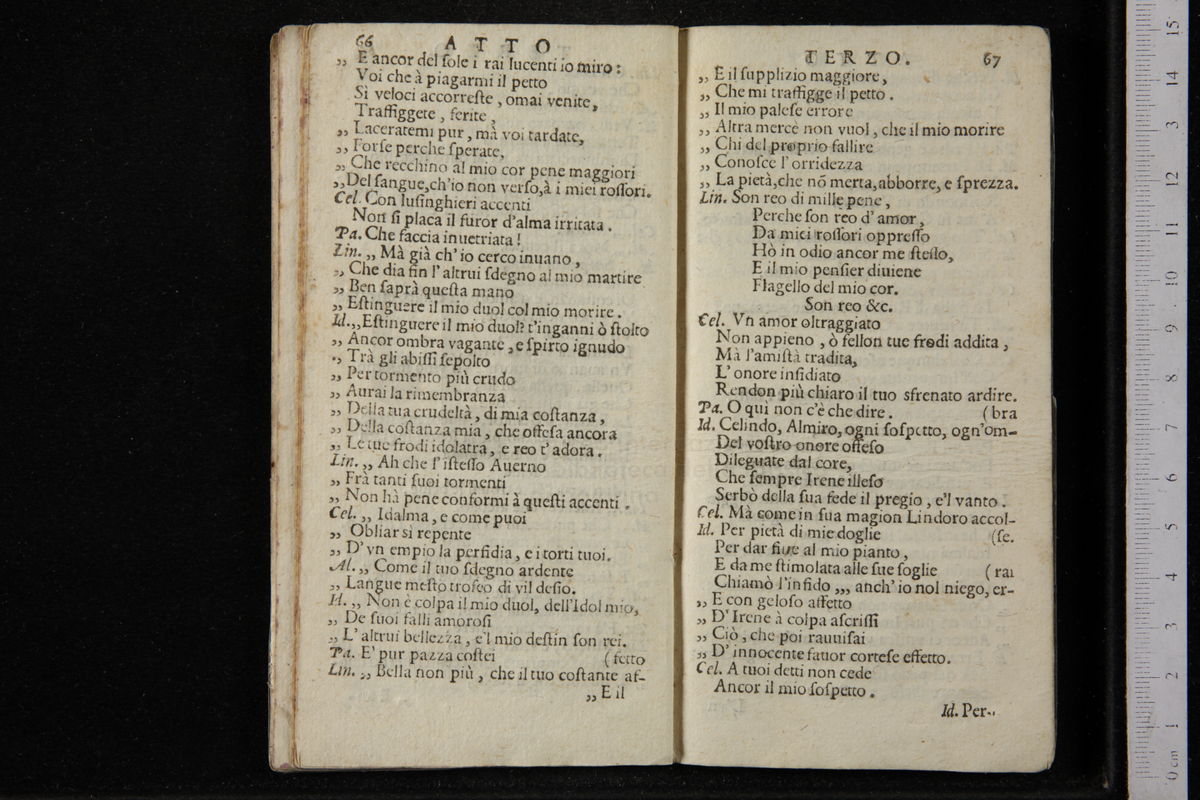 66 ATTO
„ E ancor del ſole i rai lucenti io miro:
Voi che à piagarmi il petto
Sì veloci accorreſte, omai venite,
Traffiggete, ferite,
„ Laceratemi pur, mà voi tardate,
„ Forſe perche ſperate,
„ Che recchino al mio cor pene maggiori
„ Del ſangue, ch'io non verſo, à i miei roſſori.
Cel. Con luſinghieri accenti
Non ſi placa il furor d'alma irritata.
Pa. Che faccia inuetriata!
Lin. „ Mà già ch'io cerco inuano,
„ Che dia fin l'altrui ſdegno al mio martire
„ Ben ſaprà queſta mano
„ Eſtinguere il mio duol col mio morire.
Id. „ Eſtinguere il mio duol? t'inganni ò ſtolto
„ Ancor ombra vagante, e ſpirto ignudo
„ Trà gli abiſſi ſepolto
„ Per tormento più crudo
„ Aurai la rimembranza
„ Della tua crudeltà, di mia coſtanza,
„ Della coſtanza mia, che offeſa ancora
„ Le tue frodi idolatra, e reo t'adora.
Lin. „ Ah che l'iſteſſo Auerno
„ Frà tanti ſuoi tormenti
„ Non hà pene conformi à queſti accenti.
Cel. „ Idalma, e come puoi
„ Obliar sì repente
„ D'vn empio la perfidia, e i torti tuoi.
Al. „ Come il tuo ſdegno ardente
„ Langue meſto trofeo di vil deſio.
Id. „ Non è colpa il mio duol, dell'Idol mio,
„ De ſuoi falli amoroſi
„ L'altrui bellezza, e'l mio deſtin ſon rei.
Pa. E' pur pazza coſtei (fetto
Lin. „ Bella non più, che il tuo coſtante af-
„ E il
TERZO. 67
„ E il ſupplizio maggiore,
„ Che mi traffigge il petto.
„ Il mio paleſe errore
„ Altra mercè non vuol, che il mio morire
„ Chi del proprio fallire
„ Conoſce l'orridezza
„ La pietà, che nõ merta, abborre, e ſprezza.
Lin. Son reo di mille pene,
Perche ſon reo d'amor,
Da miei roſſori oppreſſo
Hò in odio ancor me ſteſſo,
E il mio penſier diuiene
Flagello del mio cor.
Son reo &c.
Cel. Vn amor oltraggiato
Non appieno, ò fellon tue frodi addita,
Mà l'amiſtà tradita,
L'onore inſidiato
Rendon più chiaro il tuo sfrenato ardire.
Pa. O quì non c'è che dire. (bra
Id. Celindo, Almiro, ogni ſoſpetto, ogn'om-
Del voſtro onore offeſo
Dileguate dal core,
Che ſempre Irene illeſo
Serbò della ſua fede il pregio, e'l vanto.
Cel. Mà come in ſua magion Lindoro accol-
Id. Per pietà di mie doglie (ſe.
Per dar fine al mio pianto,
E da me ſtimolata alle ſue ſoglie (rai
Chiamò l'infido „, anch'io nol niego, er-
„ E con geloſo affetto
„ D'Irene à colpa aſcriſſi
„ Ciò, che poi rauuiſai
„ D'innocente fauor corteſe effetto.
Cel. A tuoi detti non cede
Ancor il mio ſoſpetto.
Id. Per-